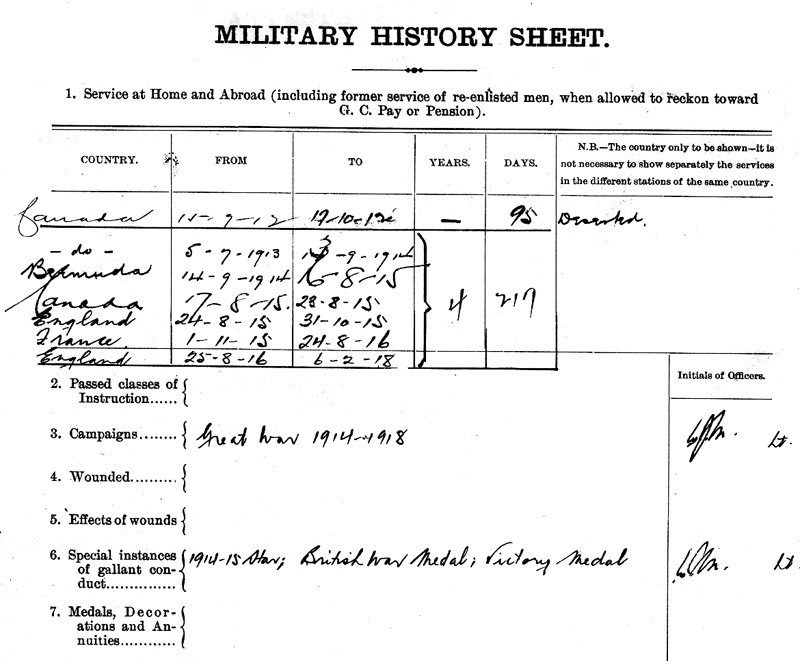 MILITARY HISTORY SHEET.
1. Service at Home and Abroad (including former service of re-enlisted men, when allowed to reckon toward
G. C. Pay or Pension).
COUNTRY. FROM TO YEARS. DAYS. N.B.—The country only to be shown—It is
not necessary to show separately the services
in the different stations of the same country.
Canada 95 Deserted.
- do - 5 - 7 - 1913 - 9 - 1914
Bermuda 14 - 9 - 1914 - 8 - 15
Canada 17 - 8 - 15. 23 - 8 - 15 4 217
England 24 - 8 - 15 31 - 10 - 15
France. 1 - 11 - 15 24 - 8 - 16
England 25 - 8 - 16 6 - 2 - 18
Initials of Officers.
2. Passed classes of
Instruction......
3. Campaigns........ Great War 1914-1918 Lt.
4. Wounded..........
5. Effects of wounds
6. Special instances 1914-15 Star; British War Medal; Victory Medal Lt
of gallant con-
duct...............
7. Medals, Decor-
ations and An-
nuities............